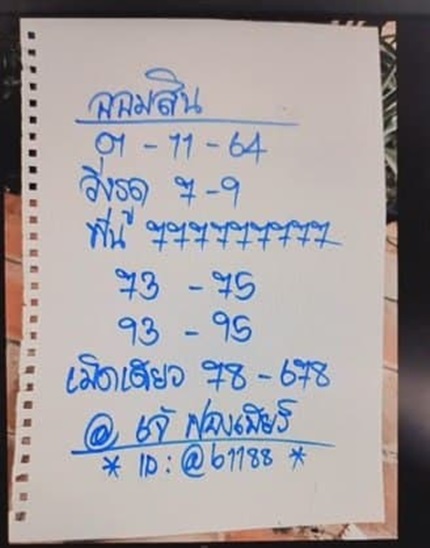 ออมสิน
01 - 11 - 64
วิ่งรูด 7 - 9
ฟัน 777777777
73 - 75
93 - 95
เม็ดเดียว 78 - 678
@ เจ๊ ฟองเบียร์
* ID : @b1188 *